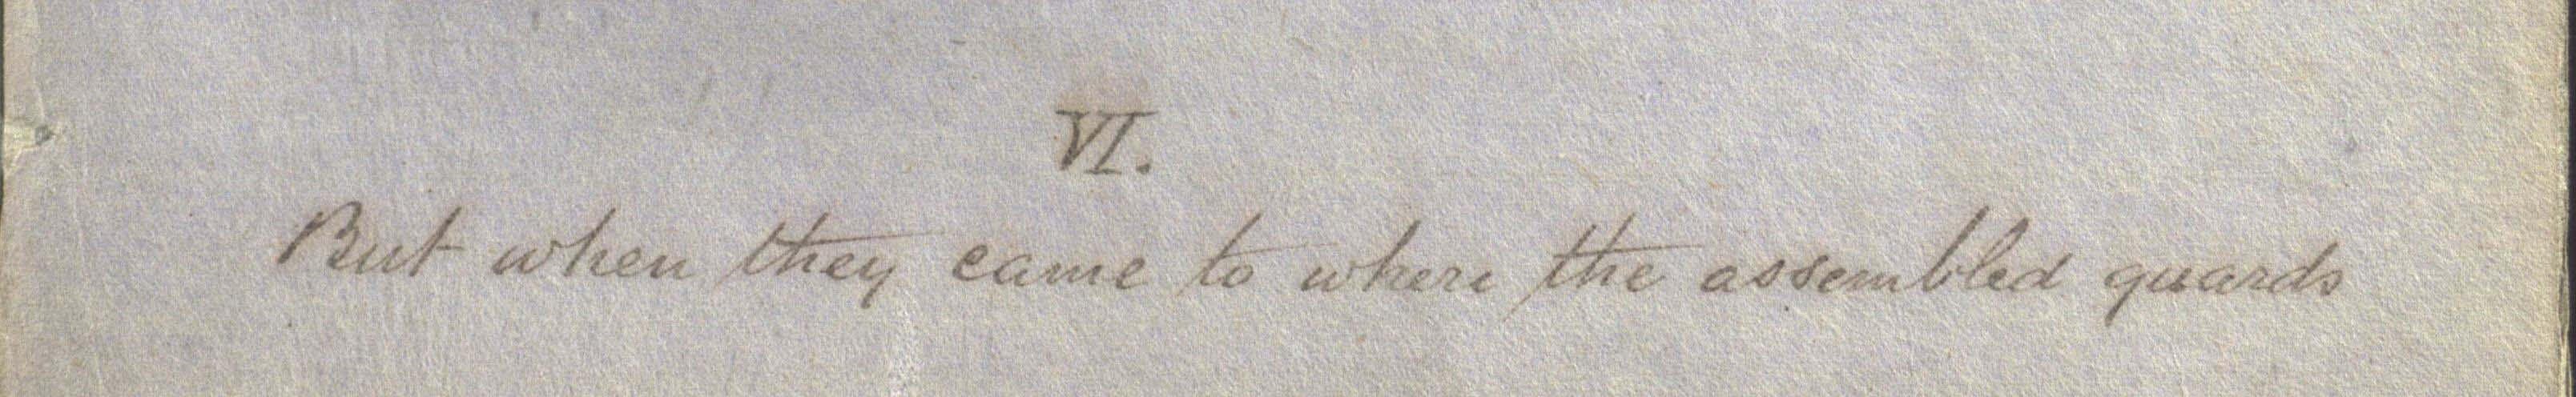 VI.
But when they came to where the assembled guards